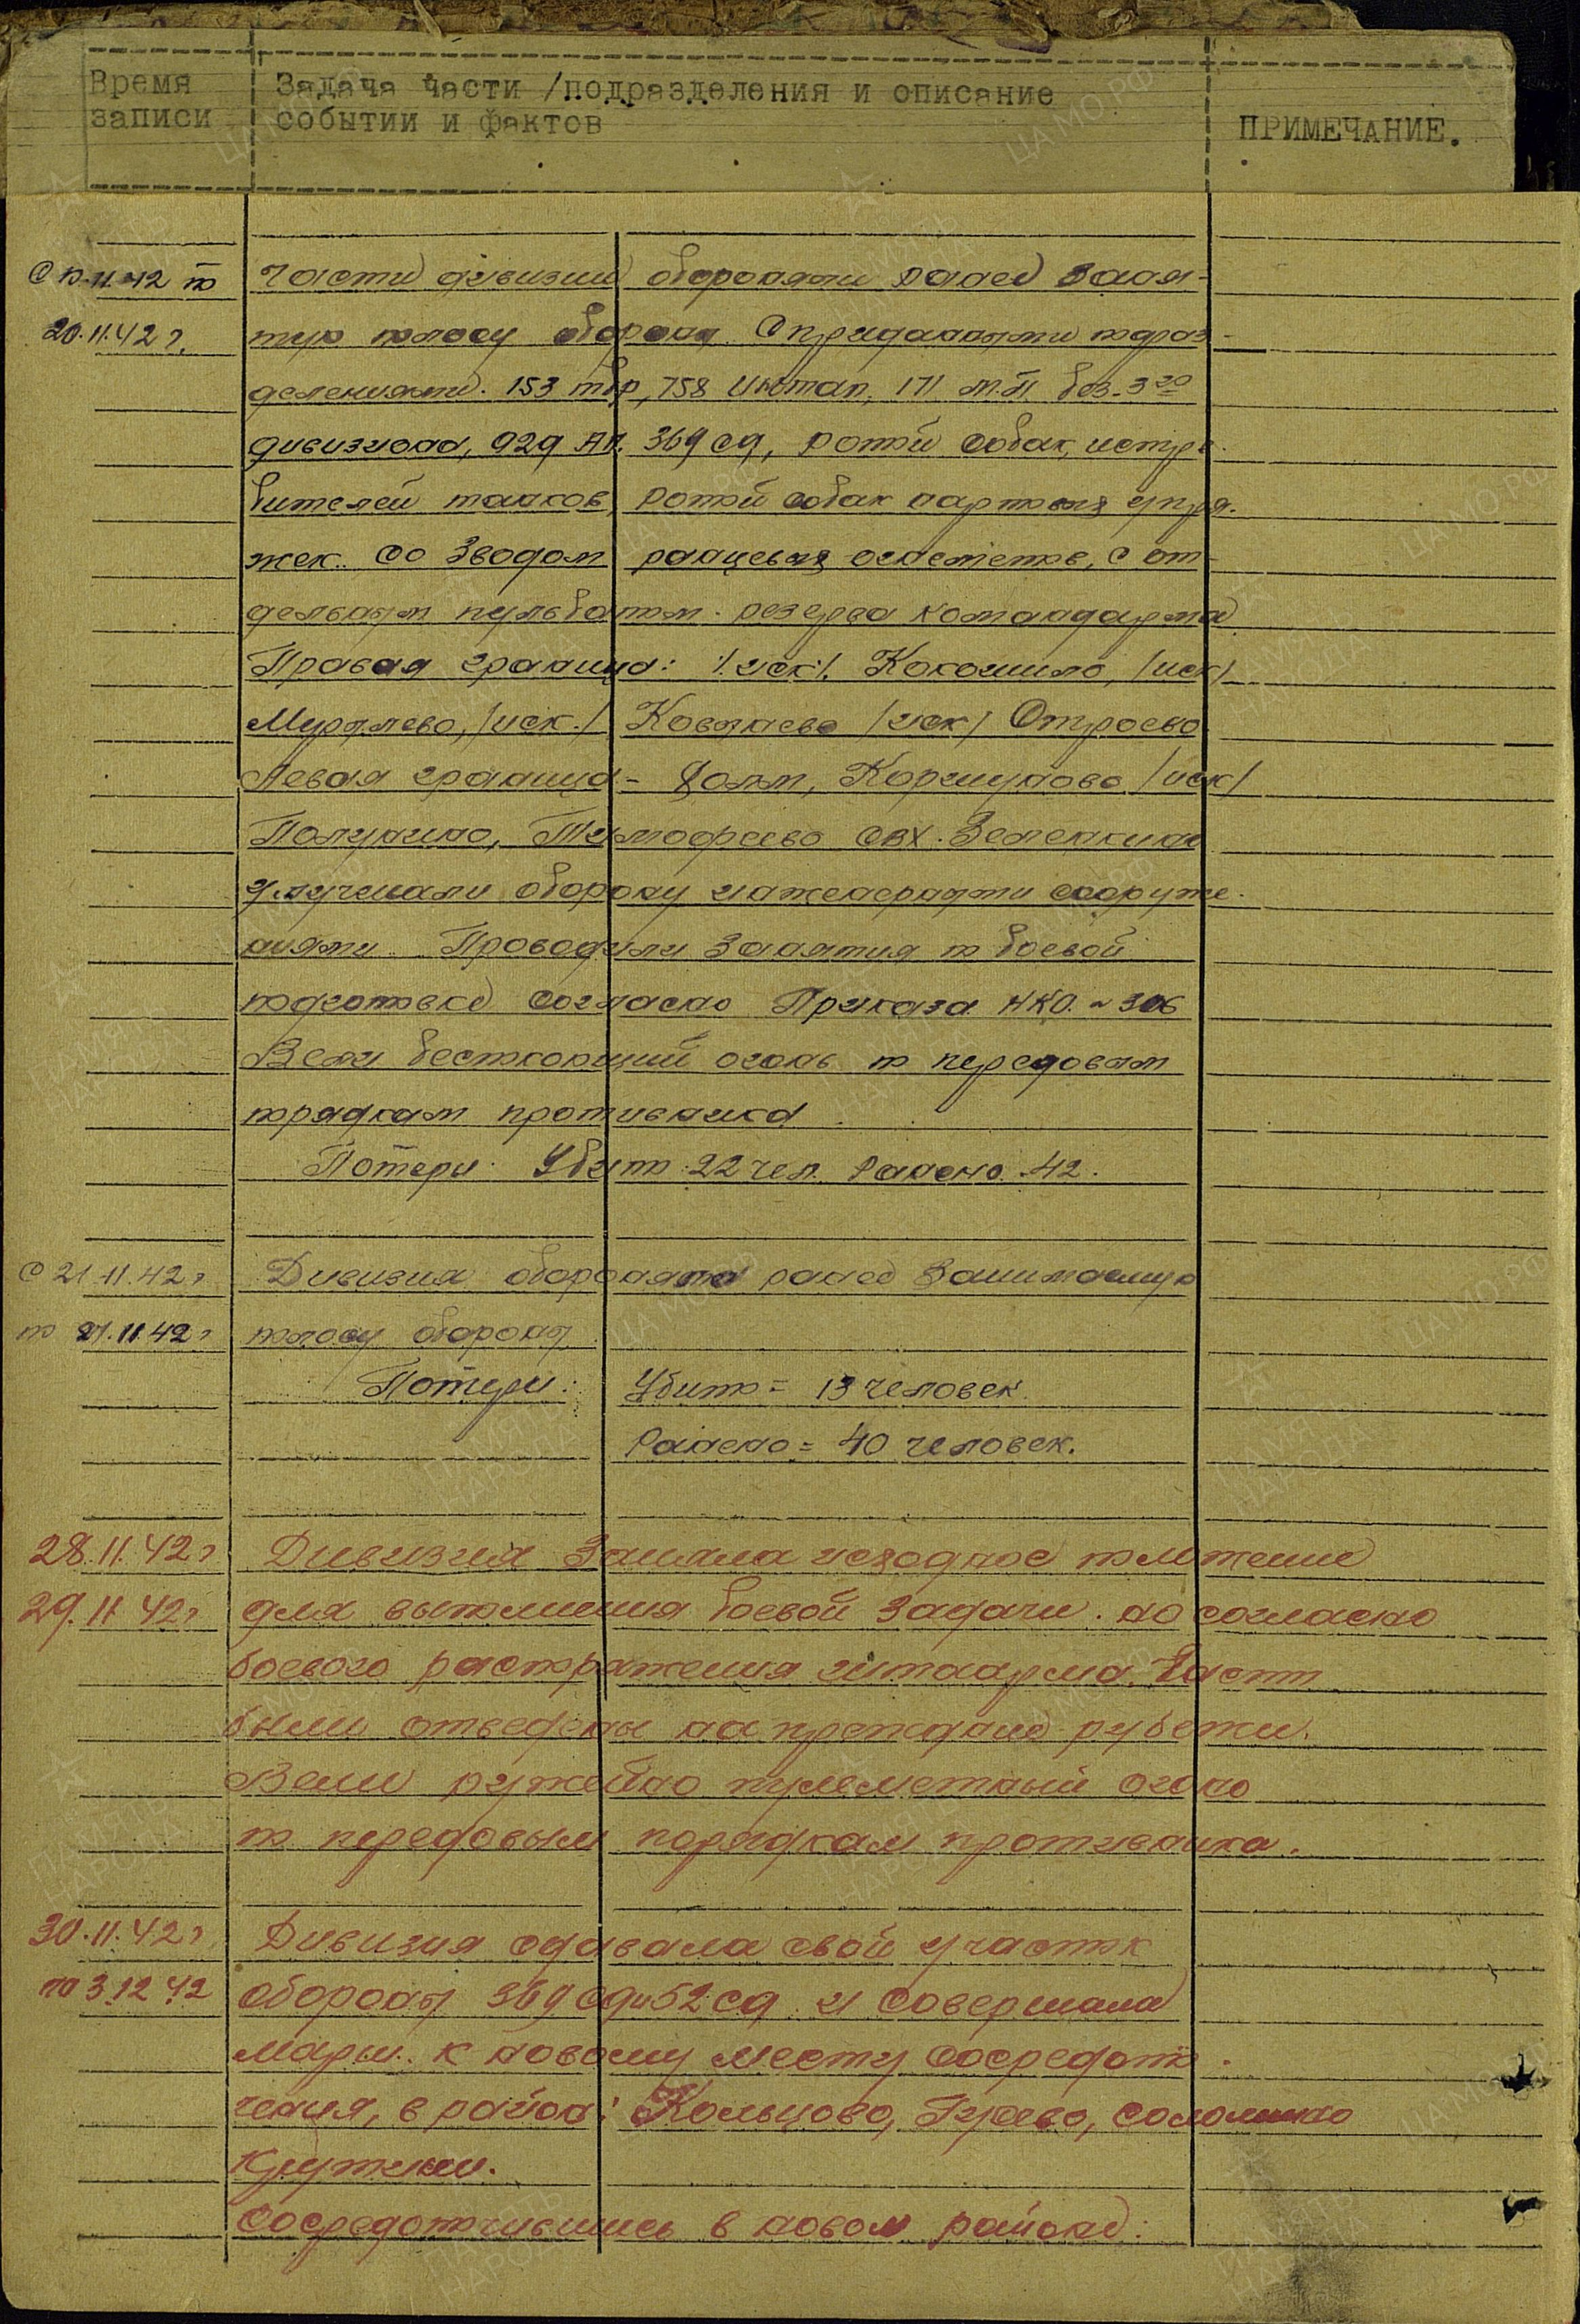 Время
записи
Задача части /подразделения и описание
событии и фактов
ПРИМЕЧАНИЕ.
С 10.11.42 по
20.11.42 г.
Части дивизии обороняли ранее заня-
тую полосу обороны. С приданными подраз-
делениями. 153 тбр, 758 , 171 м.п. без-3го
дивизиона, 929 АП. 369 сд, ротой собак, истре-
бителей танков, ротой собак нартовых упря-
жек. со Зводом ранцевых огнеметов, с от-
дельным пульбатом. резерва командарма
Правая граница: /.иск./. Кокошило, /иск/
Мурялево, /иск./ Ковынево /иск/ Отроево
Левая граница - Холм, Коршуново /иск/
Полунино, Тимофеево свх. Зеленкино
улучшали оборону инженерными сооруже-
ниями. Проводили занятия по боевой
подготовке согласно Приказа НКО. ~ 306
Вели беспокоющий огонь по передовым
порядкам противника
Потери: Убито 22 чел. Ранено 42.
С 21.11.42 г
по 27.11.42 г
Дивизия обороняла ранее занимаемую
полосу обороны.
Потери: Убито = 13 человек.
Ранено = 40 человек.
28.11.42 г
29.11.42 г
Дивизия заняла исходное положение
для выполнения боевой задачи. но согласно
боевого распоряжения штаарма. Части
были отведены на прежние рубежи.
Вели ружейно пулеметный огонь
по передовым порядкам противника.
30.11.42 г
по 3.12 42
Дивизия сдавала свой участок
обороны 369 сд и 52 сд и совершала
марш. к новому месту сосредото-
чения, в район: Кольцово, Гусево, Соломино
Крутики.
Сосредоточившись в новом районе: